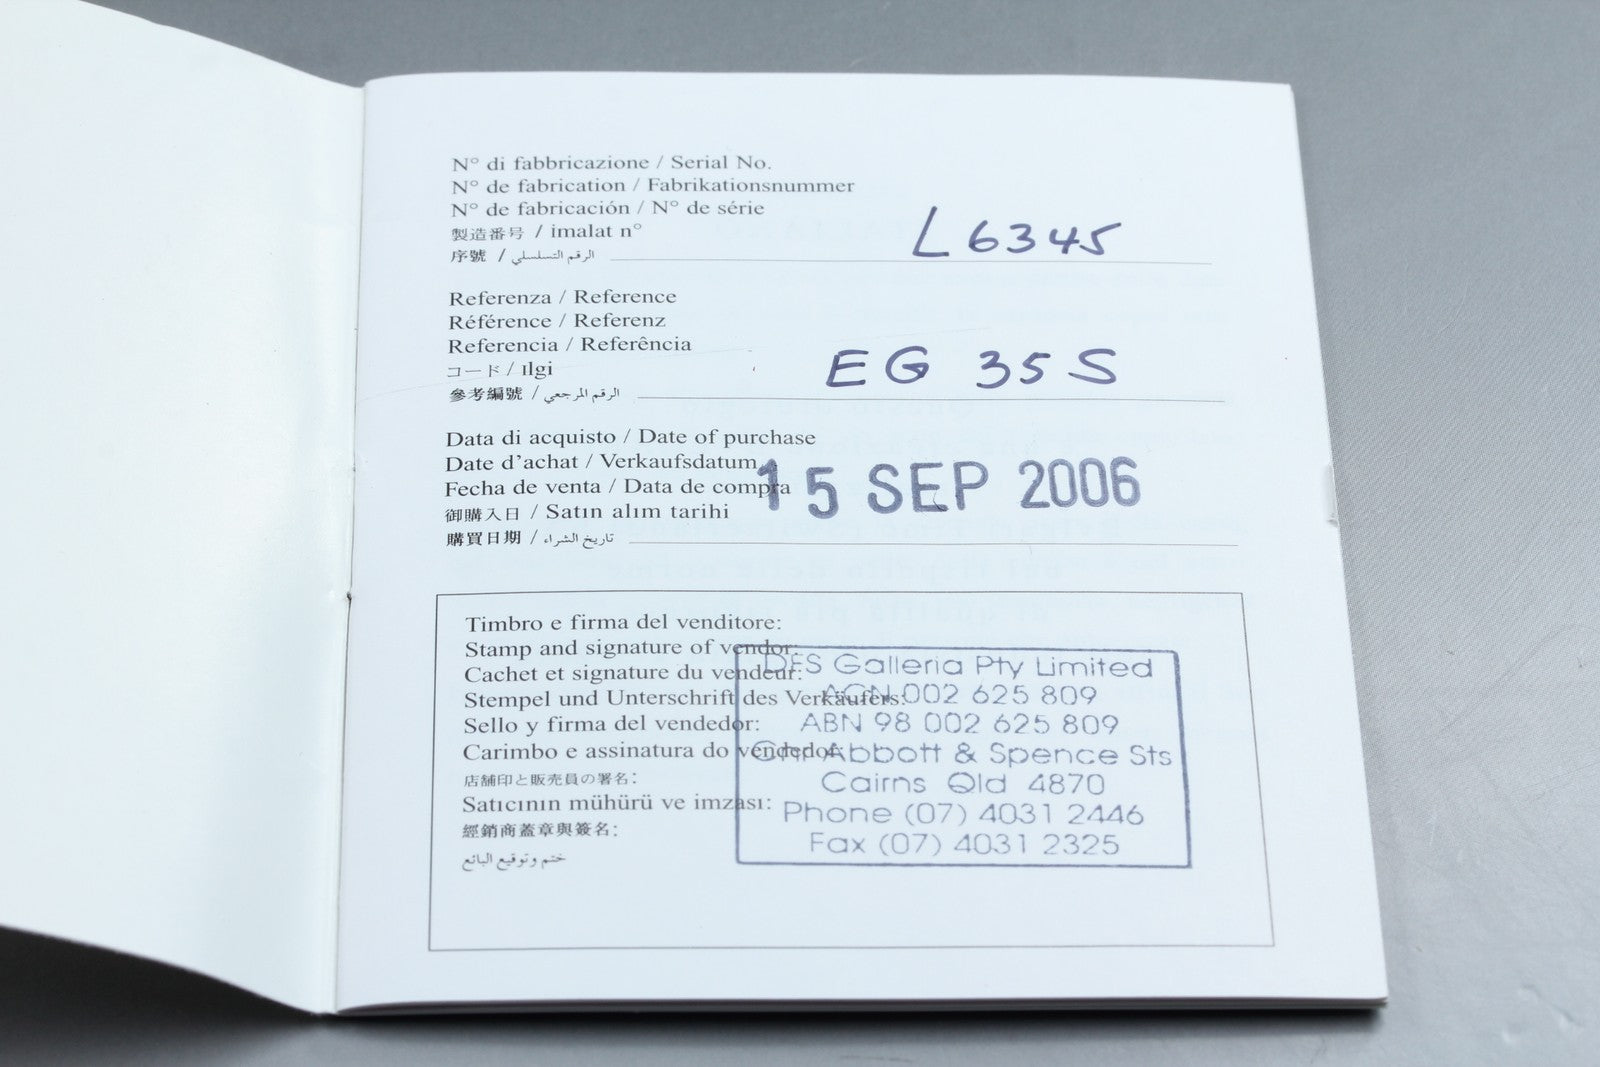 N° di fabbricazione / Serial No.
N° de fabrication / Fabrikationsnummer
N° de fabricación / N° de série
製造番号 / imalat n°
序號 / الرقم التسلسلي
L6345
Referenza / Reference
Référence / Referenz
Referencia / Referência
コード / ılgi
參考編號 / الرقم المرجعي
EG 35 S
Data di acquisto / Date of purchase
Date d'achat / Verkaufsdatum
Fecha de venta / Data de compra
御購入日 / Satın alım tarihi
購買日期 / تاريخ الشراء
15 SEP 2006
Timbro e firma del venditore:
Stamp and signature of vendor:
Cachet et signature du vendeur:
Stempel und Unterschrift des Verkäufers:
Sello y firma del vendedor:
Carimbo e assinatura do vendedor:
店舗印と販売員の署名:
Satıcının mühürü ve imzası:
經銷商蓋章與簽名:
ختم وتوقيع البائع
DFS Galleria Pty Limited
ACN 002 625 809
ABN 98 002 625 809
Cnr Abbott & Spence Sts
Cairns Qld 4870
Phone (07) 4031 2446
Fax (07) 4031 2325